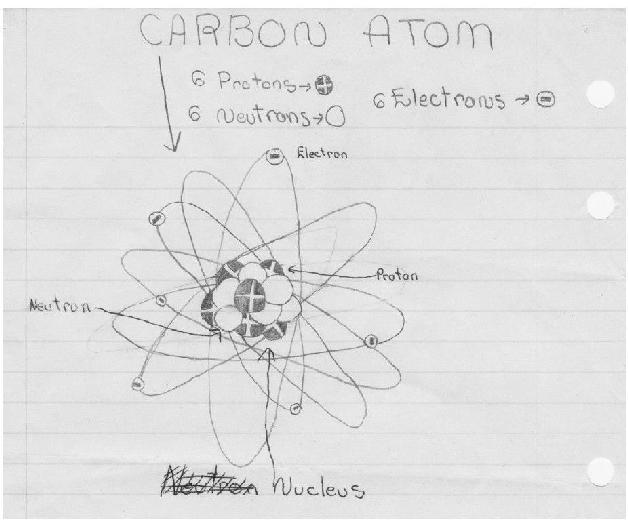 CARBON ATOM
6 Protons→
6 Neutrons→
6 Electrons →
Electron
Proton
Neutron
Neutron Nucleus